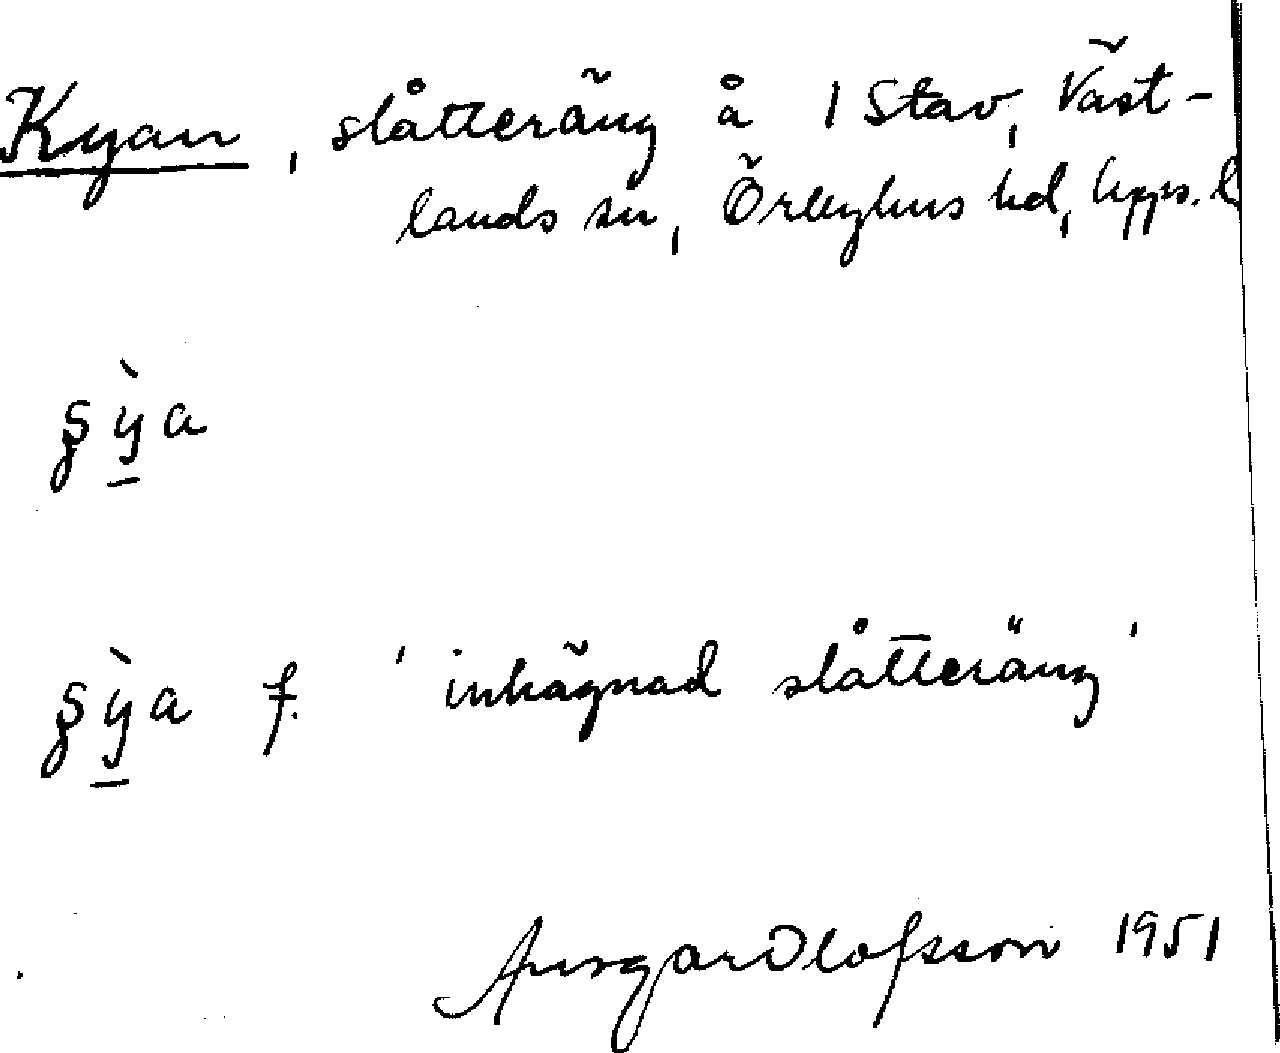 Kyan, slåtteräng å 1 Stav, Väst-
lands sn, Örbyhus hd, Upps. l
ỳa
ỳa f. 'inhägnad slåtteräng'
Ansgar Olofsson 1951